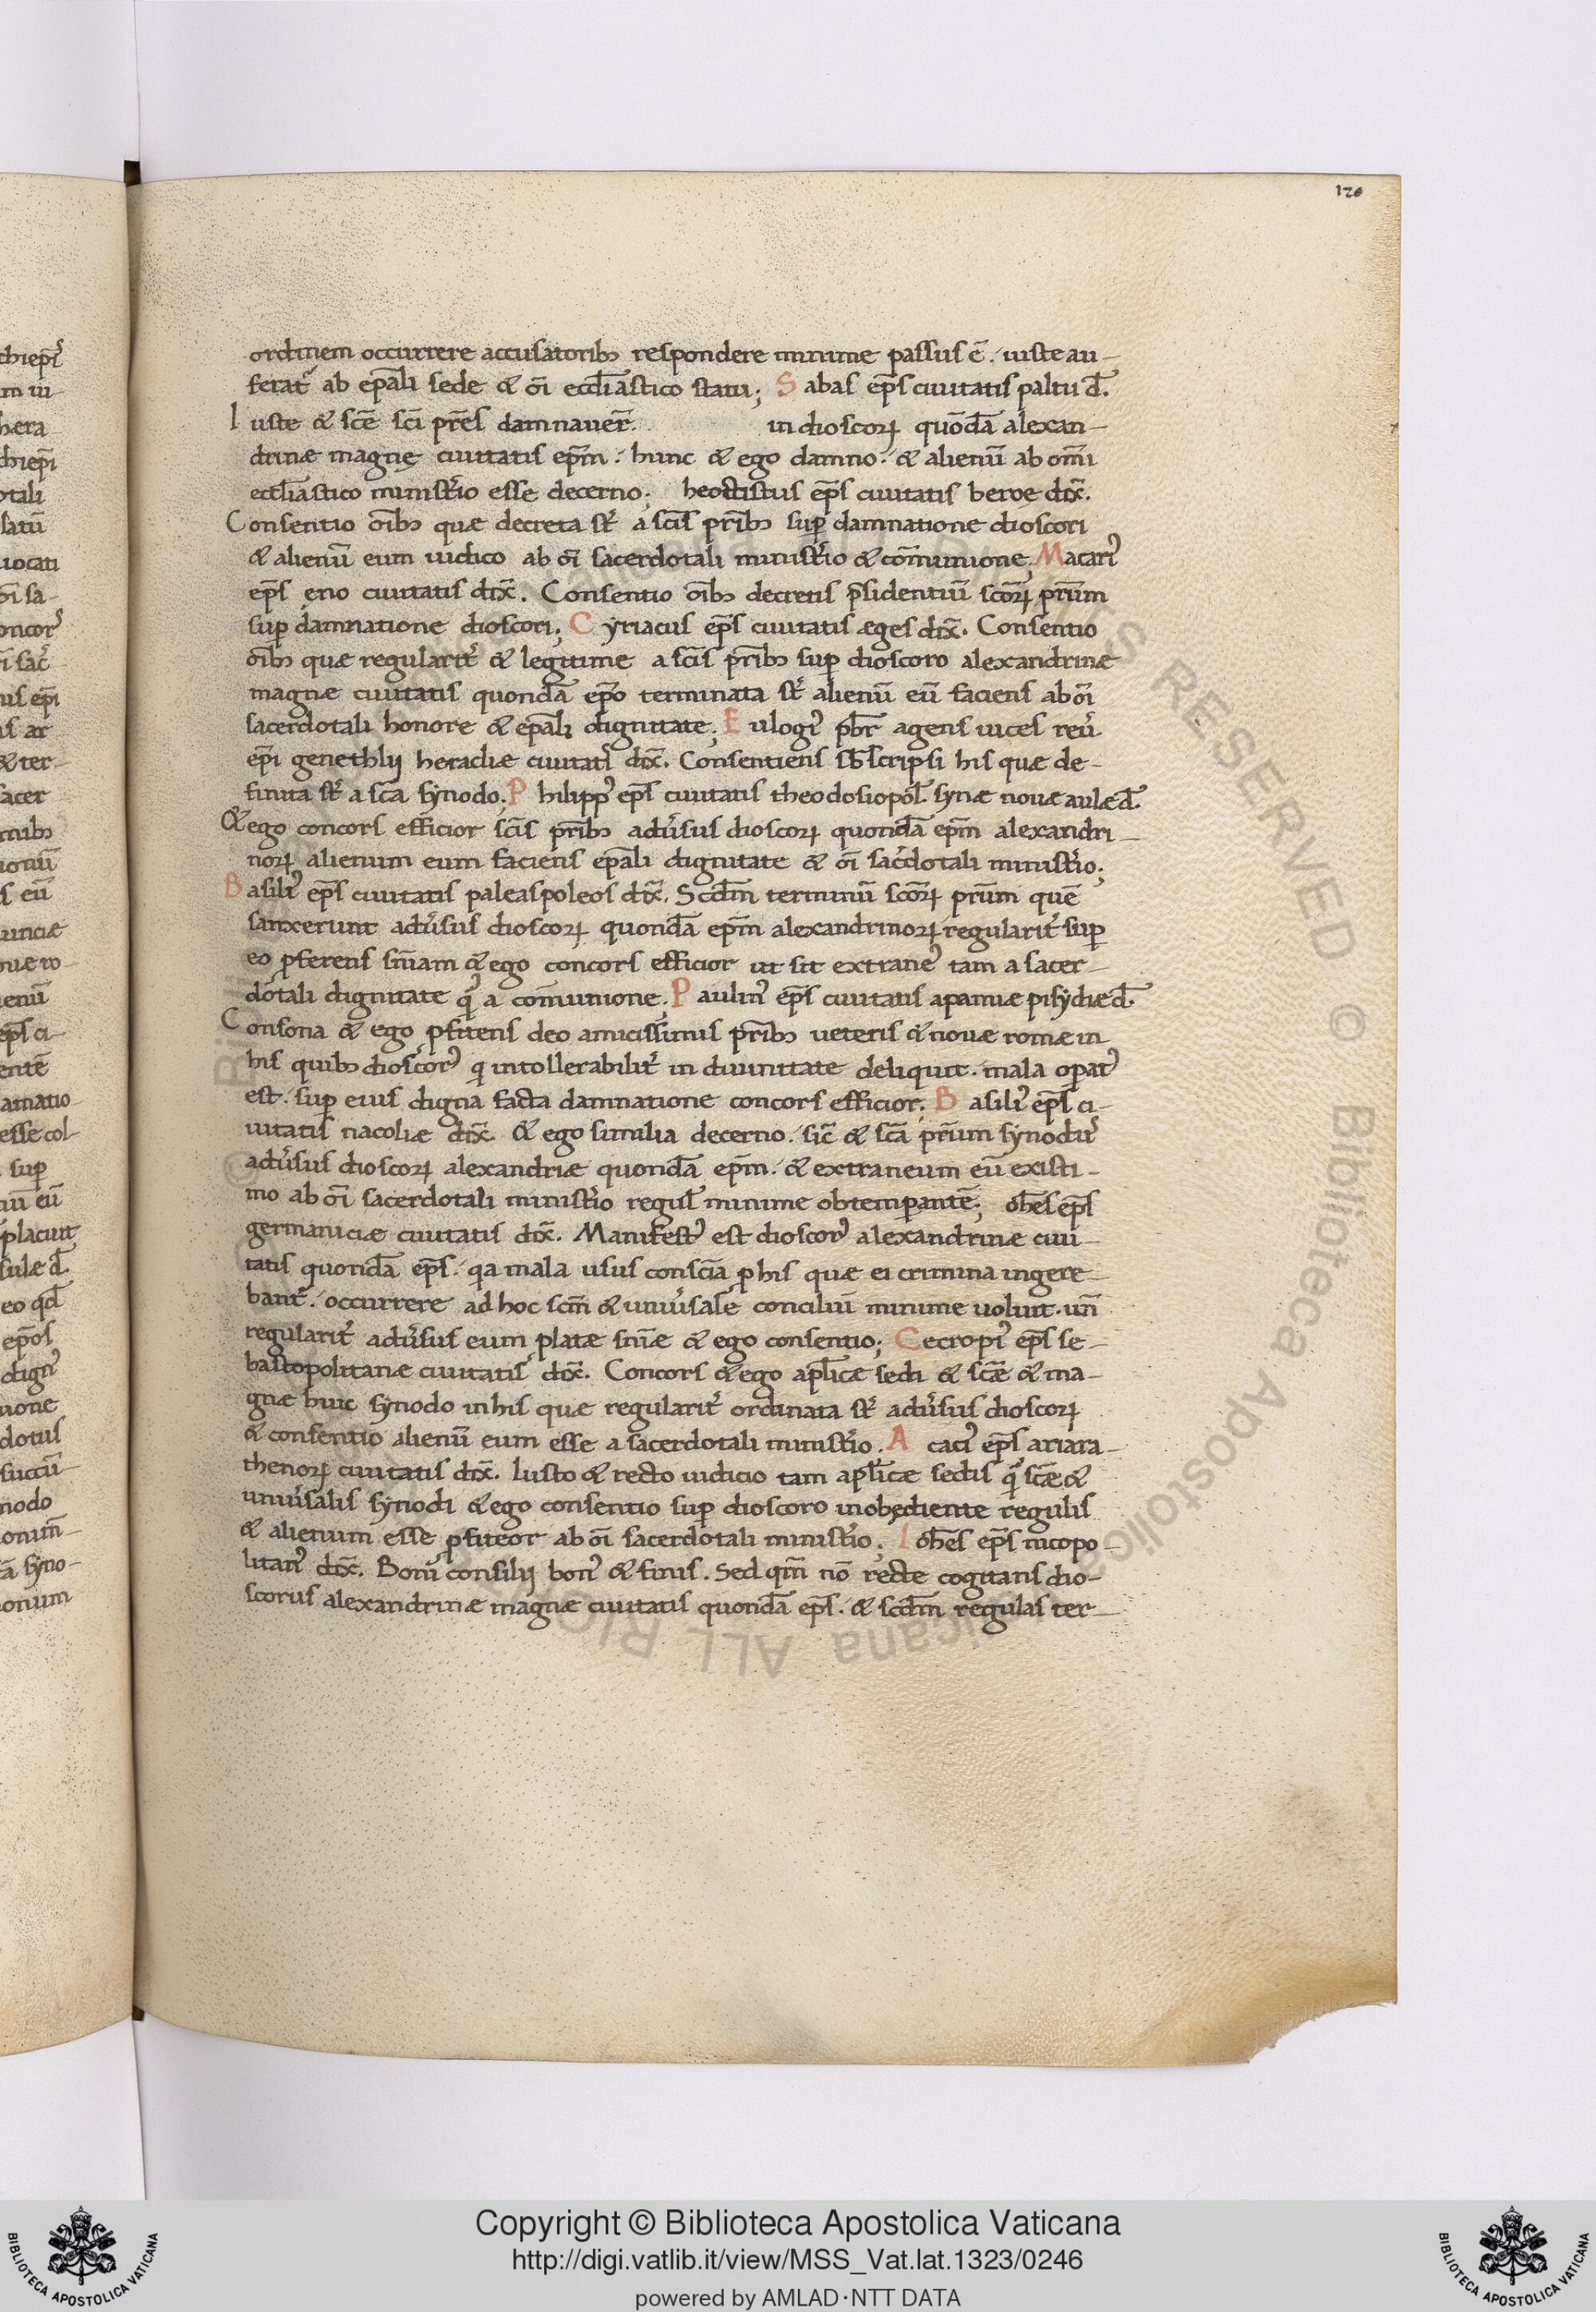 120
ordinem occurrere accusatoribꝫ respondere minime passus ē. iuste au-
ferat᷒ ab ep̄ali sede & ōi eccl̄iastico statu; Sabas ep̄s ciuitatis paltu d̄.
Iuste & sc̄e sc̄i pr̄es damnauer̄. in dioscoꝝ quōdā alexan-
drinæ magnę ciuitatis ep̄m. hunc & ego damno. & alienū ab om̄i
eccl̄iastico minist̓io esse decerno; heoctistus ep̄s ciuitatis beroe dix̄.
Consentio oībꝫ quæ decreta st̓ a sc̄is pr̄ibꝫ suꝑ damnatione dioscori
& alienū eum iudico ab ōi sacerdotali minist̓io & cōmunione; Macari᷒
ep̄s eno ciuitatis dix̄. Consentio oībꝫ decretis p̄sidentiū sc̄oꝝ pr̄um
suꝑ damnatione dioscori; Cyriacus ep̄s ciuitatis æges dix̄. Consentio
oībꝫ quæ regularit̓ & legitime a sc̄is pr̄ibꝫ suꝑ dioscoro alexandrinæ
magnæ ciuitatis quondā ep̄o terminata st̓ alienū eū faciens ab ōi
sacerdotali honore & ep̄ali dignitate; Eulogi᷒ pb̄r agens uices reū
ep̄i genethlij heracliæ ciuitati᷒ dix̄. Consentiens sb̄scripsi his quæ de-
finita st̓ a sc̄a synodo; Philipp᷒ ep̄s ciuitatis theodosiopol̄. synæ nouæ aulæ d̄.
& ego concors efficior sc̄is pr̄ibꝫ adu̓sus dioscoꝝ quondā ep̄m alexandri-
noꝝ alienum eum faciens ep̄ali dignitate & ōi sac̓dotali minist̓io;
Basili᷒ ep̄s ciuitatis paleaspoleos dix̄. Scd̄m terminū sc̄oꝝ pr̄um quē
sanxerunt adu̓sus dioscoꝝ quondā ep̄m alexandrinoꝝ regularit̓ suꝑ
eo ꝓferens sn̄iam & ego concors efficior ut sit extrane᷒ tam a sacer-
dotali dignitate qͣ a com̄unione; Paulin᷒ ep̄s ciuitatis apamiæ pisydiæ d̄.
Consona & ego ꝓfitens deo amicissimis pr̄ibꝫ ueteris & nouæ romæ in
his quibꝫ dioscor᷒ q̓ intollerabilit̓ in diuinitate deliquit. mala oꝑat᷒
est. suꝑ eius digna facta damnatione concors efficior; Basili᷒ ep̄s ci-
uitatis nacoliæ dix̄. & ego similia decerno. sic̄ & sc̄a pr̄um synodus
adu̓sus dioscoꝝ alexandriæ quondā ep̄m. & extraneum eū existi-
mo ab ōi sacerdotali minist̓io regul̄ minime obtemꝑantē; oh̄es ep̄s
germaniciæ ciuitatis dix̄. Manifest᷒ est dioscor᷒ alexandrinæ ciui-
tatis quondā ep̄s. qa mala usus consciā ꝑ his quæ ei crimina ingere-
bant̓. occurrere ad hoc sc̄m & uniu̓sale conciliū minime uoluit. un̄
regularit̓ adu̓sus eum platæ sn̄iæ & ego consentio; Cecropi᷒ ep̄s se-
bastopolitanæ ciuitatis dix̄. Concors & ego apl̄icæ sedi & sc̄æ & ma-
gnæ huic synodo in his quæ regularit̓ ordinata st̓ adu̓sus dioscoꝝ
& consentio alienū eum esse a sacerdotali minist̓io. Acaci᷒ ep̄s ariara-
thenoꝝ ciuitatis dix̄. Iusto & recto iudicio tam apl̄icæ sedis qͣ sc̄æ &
uniu̓salis synodi & ego consentio suꝑ dioscoro inobediente regulis
& alienum esse ꝓfiteor ab ōi sacerdotali minist̓io; Ioh̄es ep̄s nicopo-
litan᷒ dix̄. Boni consilij bon᷒ & finis. Sed qm̄ nō recte cogitans dio-
scorus alexandrinæ magnæ ciuitatis quondā ep̄s. & scd̄m regulas ter-
Copyright © Biblioteca Apostolica Vaticana
http://digi.vatlib.it/view/MSS_Vat.lat.1323/0246
powered by AMLAD·NTT DATA